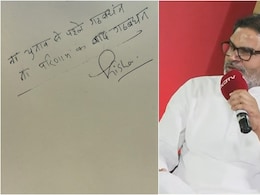 ना चुनाव से पहले गठबंधन
ना परिणाम के बाद गठबंधन
NDTV